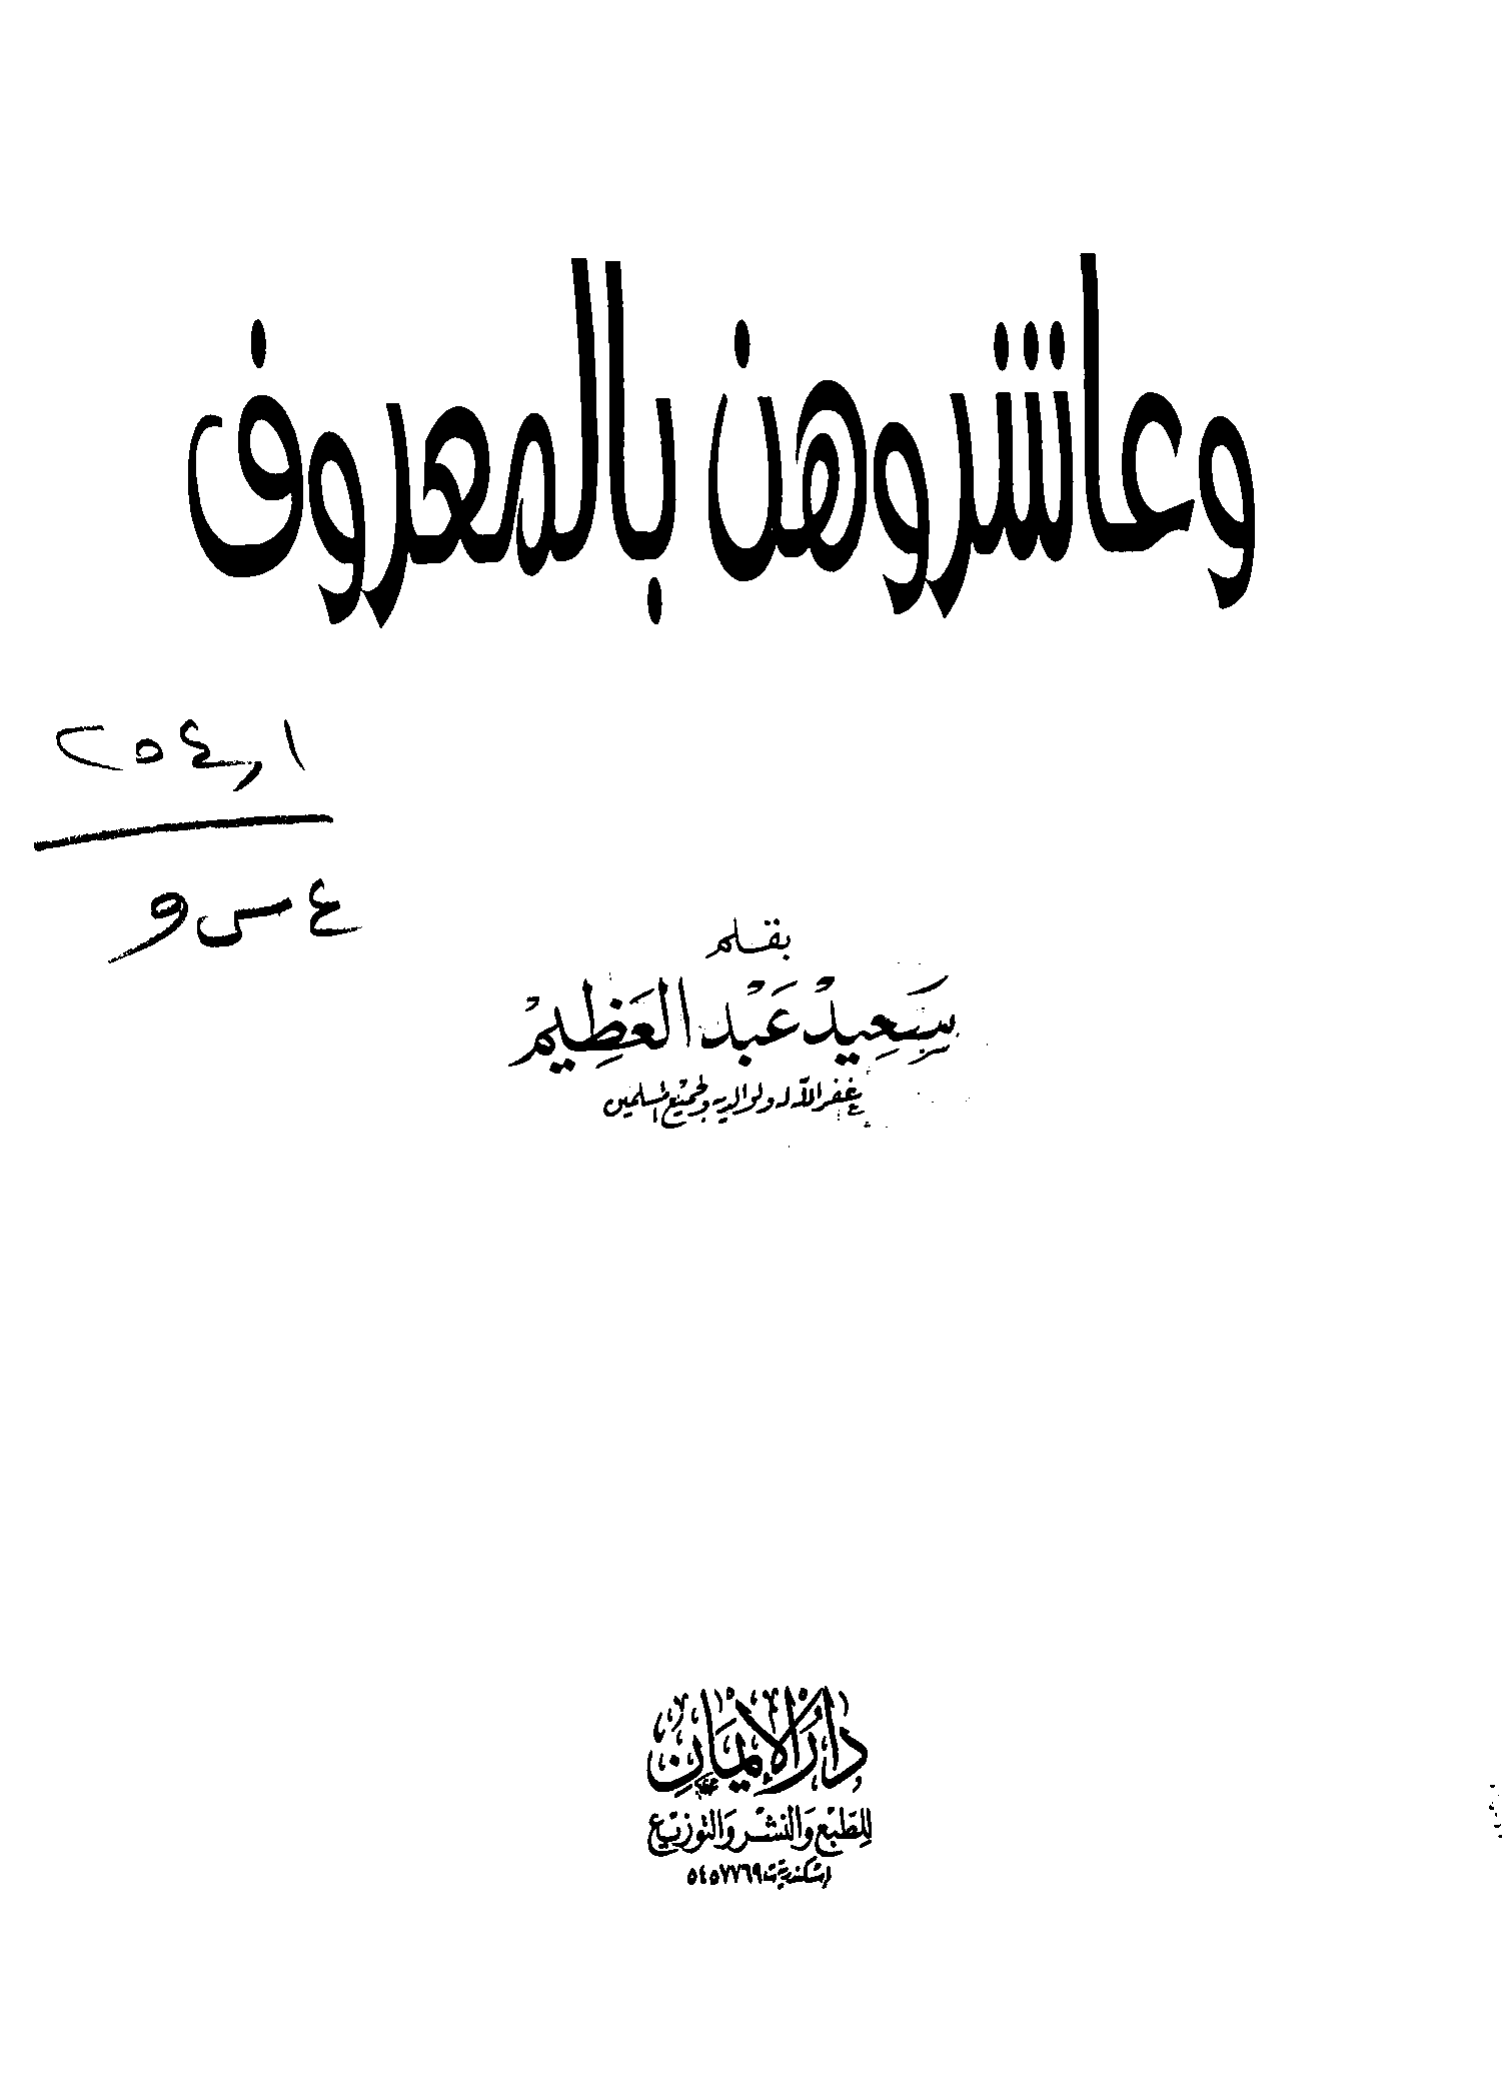 وعاشروهن بالمعروف
٢٥٤,١
ع س و
بقلم
سَعِيدْ عَبْد العَظِيمْ
غفر الله له ولوالديه ولجميع المسلمين
دار الإيمان
للطبع والنشر والتوزيع
إسكندرية ت ٥٤٥٧٧٦٩